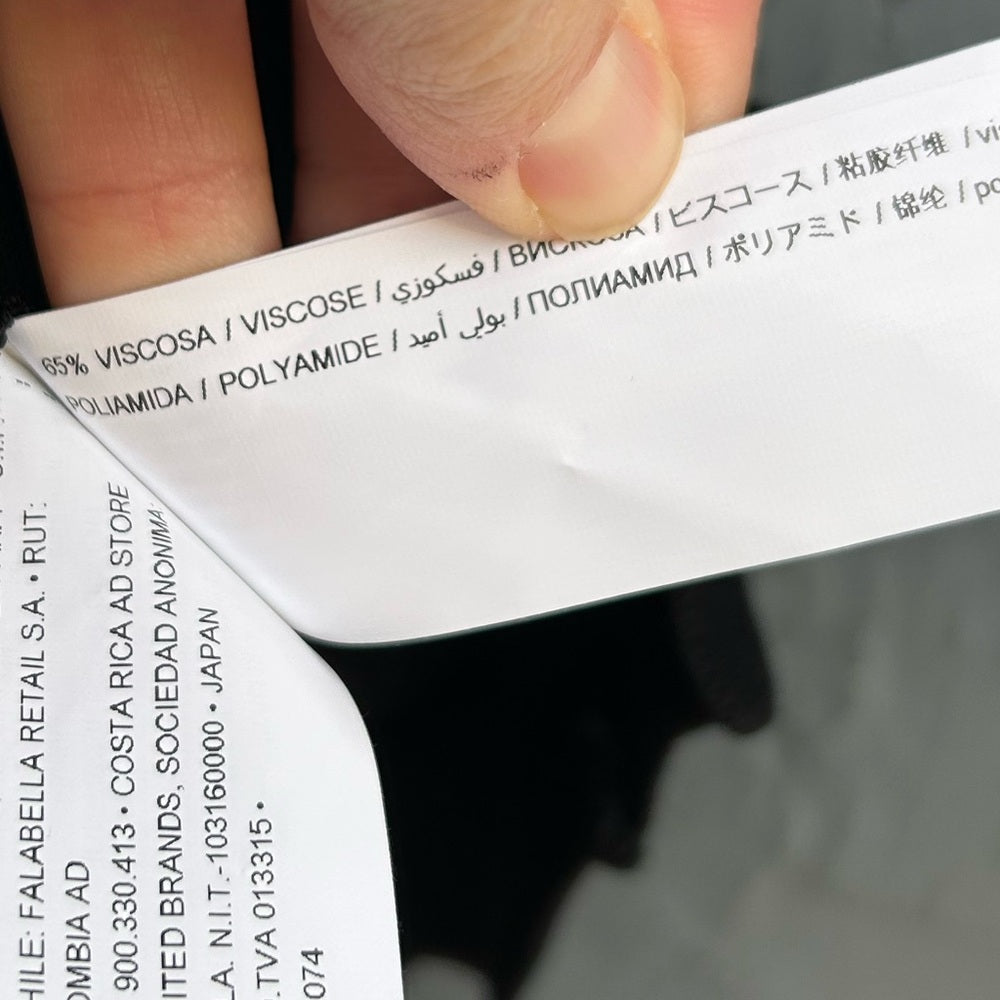 65% VISCOSA / VISCOSE / فسكوزي / ВИСКОЗА / ビスコース / 粘胶纤维 /
POLIAMIDA / POLYAMIDE / بولي أميد / ПОЛИАМИД / ポリアミド / 锦纶 /
FALABELLA RETAIL S.A. • RUT:
AD
900.330.413 • COSTA RICA AD STORE
BRANDS, SOCIEDAD ANONIMA.
N.I.T.-103160000 • JAPAN
TVA 013315 •
074